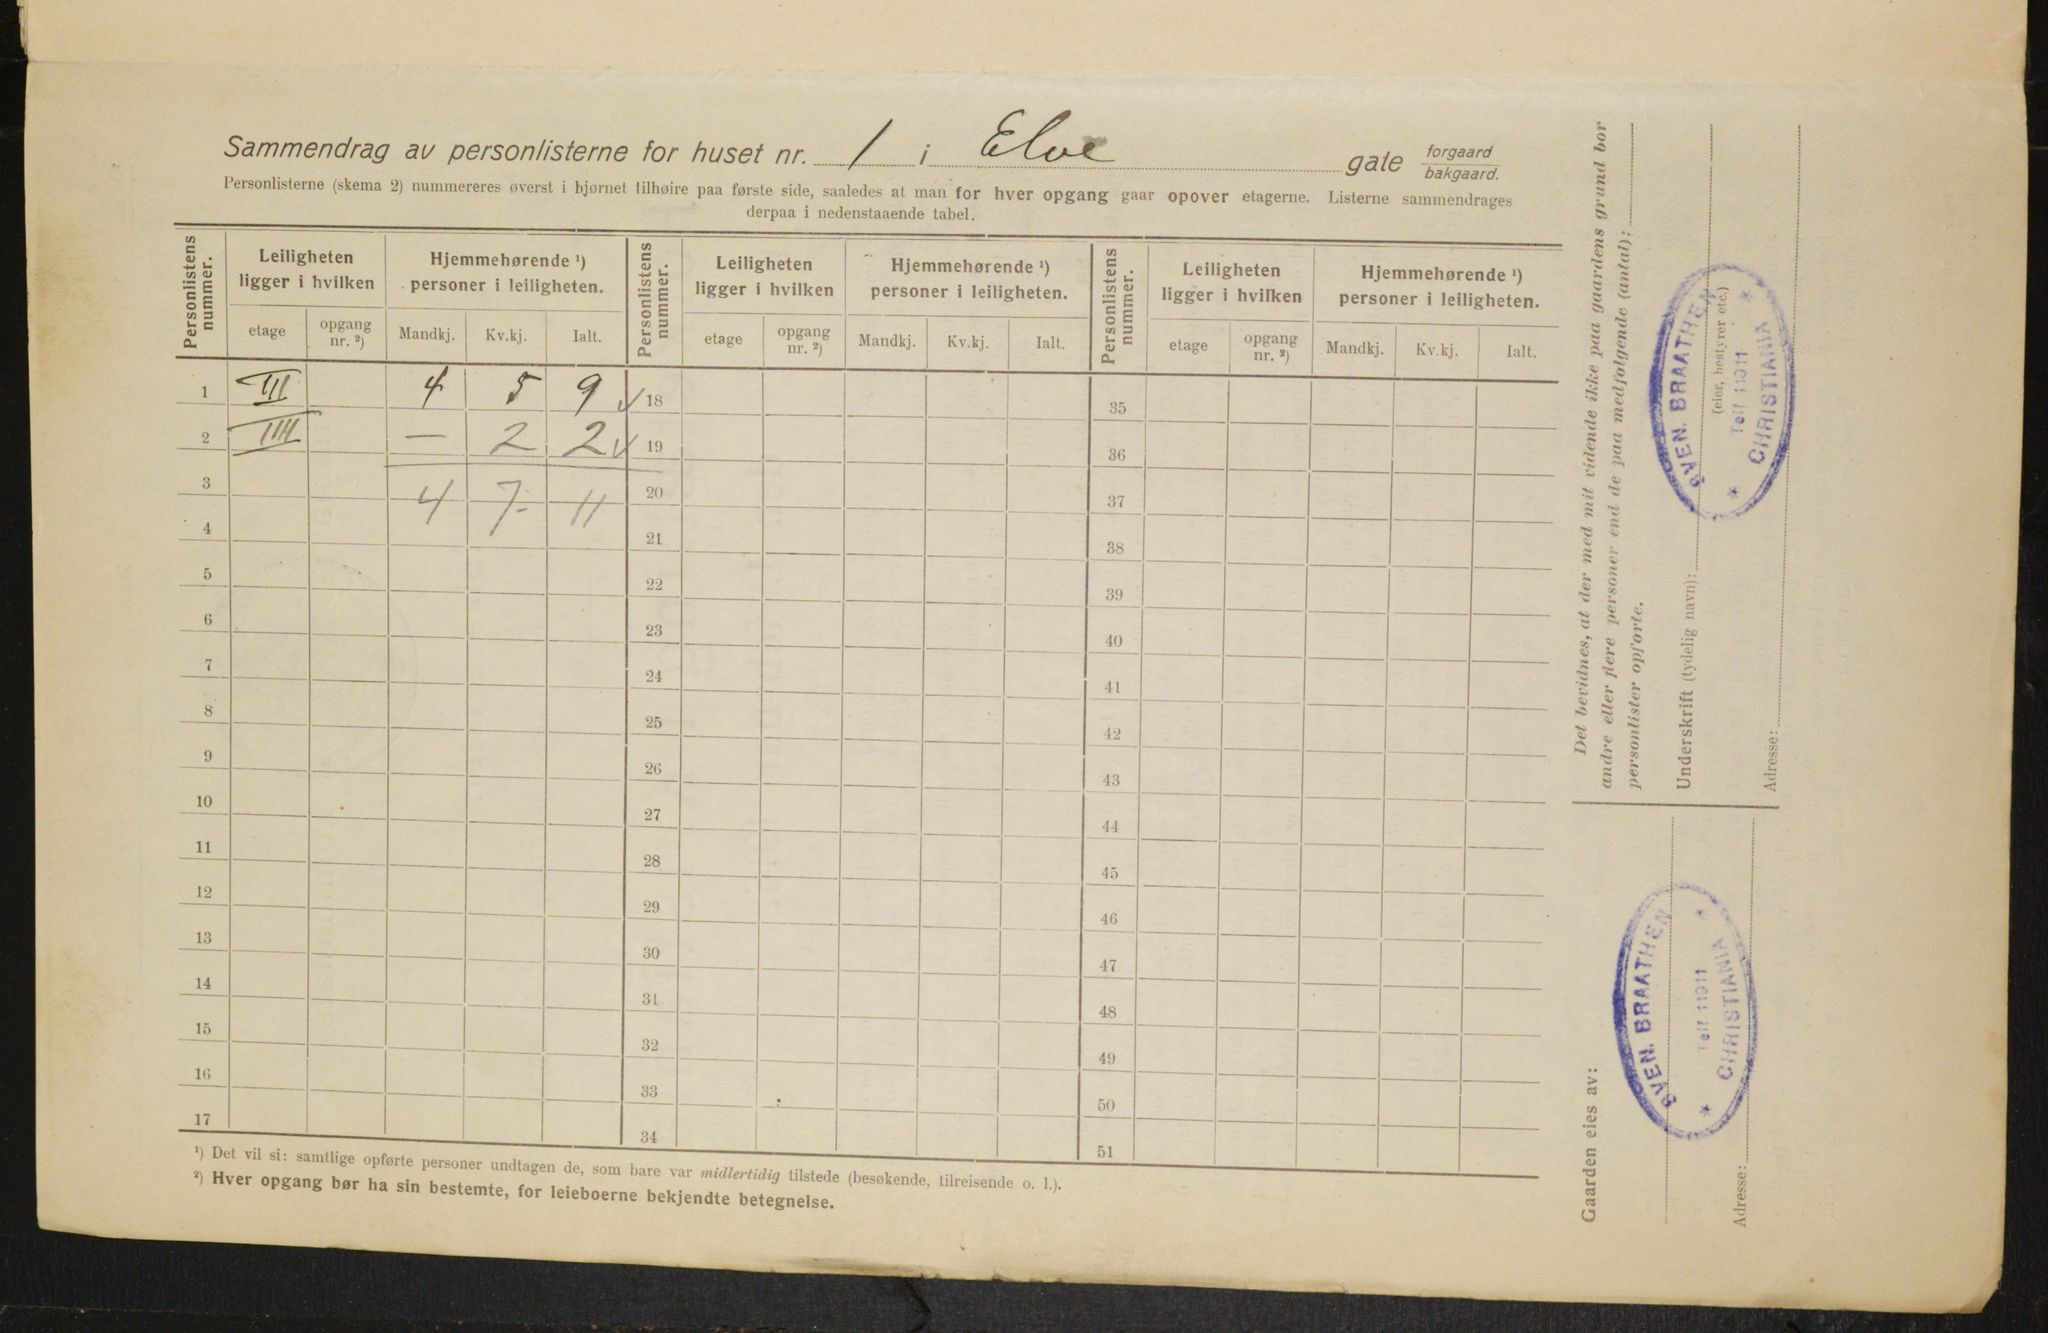 Sammendrag av personlisterne for huset nr. 1 i Elve gate forgaard bakgaard.
Personlisterne (skema 2) nummereres øverst i hjørnet tilhøire paa første side, saaledes at man for hver opgang gaar opover etagerne. Listerne sammendrages
derpaa i nedenstaaende tabel.
Personlistens nummer. Leiligheten ligger i hvilken Hjemmehørende ¹) personer i leiligheten. Personlistens nummer. Leiligheten ligger i hvilken Hjemmehørende ¹) personer i leiligheten. Personlistens nummer. Leiligheten ligger i hvilken Hjemmehørende ¹) personer i leiligheten.
etage opgang nr. ²) Mandkj. Kv.kj. Ialt. etage opgang nr. ²) Mandkj. Kv.kj. Ialt. etage opgang nr. ²) Mandkj. Kv.kj. Ialt.
1 III 4 5 9 ✓ 18 35
2 IIII — 2 2 ✓ 19 36
3 4 7 11 20 37
4 21 38
5 22 39
6 23 40
7 24 41
8 25 42
9 26 43
10 27 44
11 28 45
12 29 46
13 30 47
14 31 48
15 32 49
16 33 50
17 34 51
¹) Det vil si: samtlige opførte personer undtagen de, som bare var midlertidig tilstede (besøkende, tilreisende o. l.).
²) Hver opgang bør ha sin bestemte, for leieboerne bekjendte betegnelse.
Det bevidnes, at der med mit vidende ikke paa gaardens grund bor
andre eller flere personer end de paa medfølgende (antal):
personlister opførte.
Underskrift (tydelig navn):
(eier, bestyrer etc.)
Adresse:
SVEN. BRAATHEN
Telf 11911
CHRISTIANIA
Gaarden eies av:
Adresse:
SVEN. BRAATHEN
Telf 11911
CHRISTIANIA